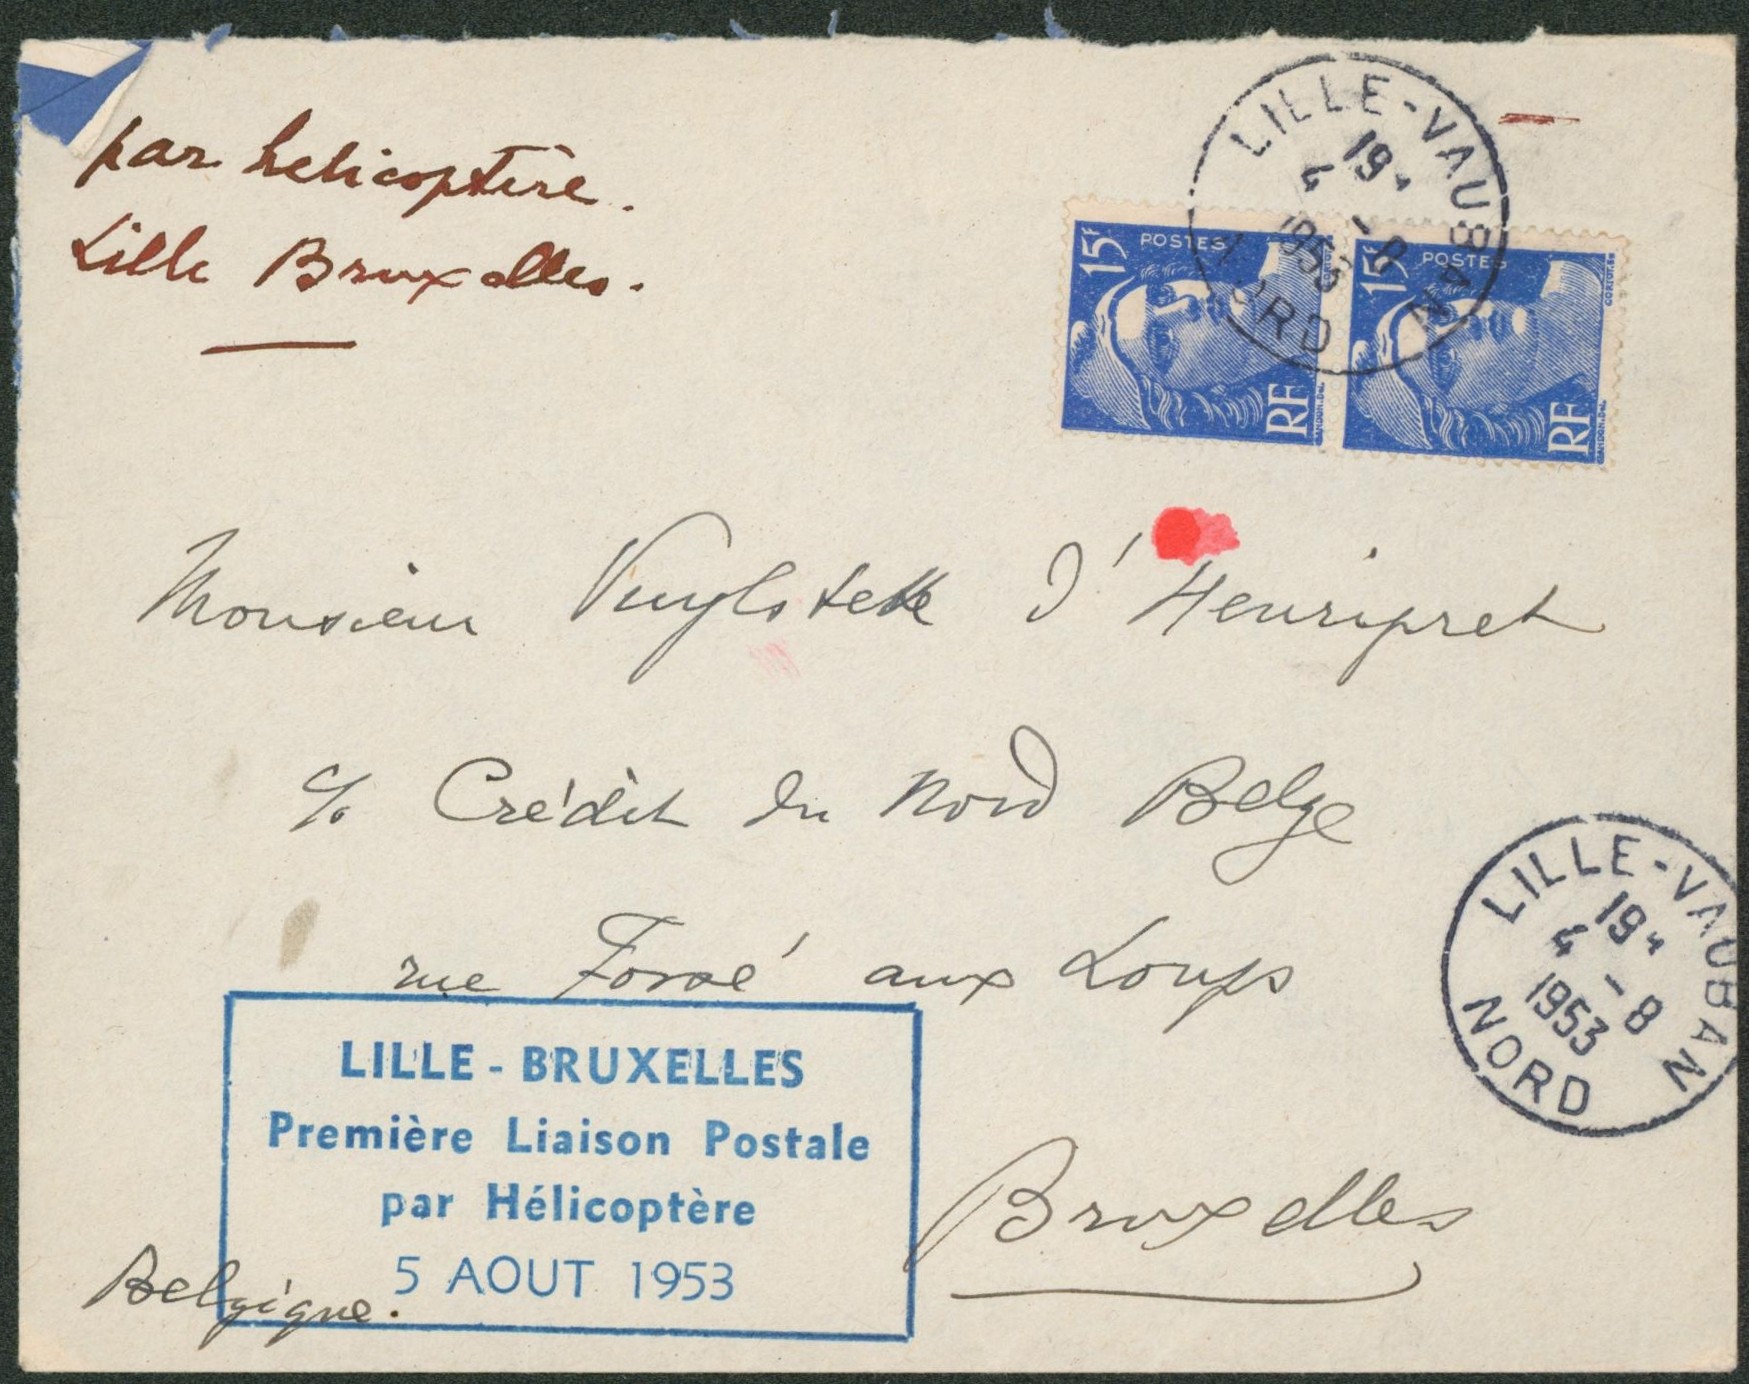 par hélicoptère.
Lille Bruxelles.
LILLE-VAUBAN
19H
4-8
1953
NORD
15F POSTES
RF
15F POSTES
RF
Monsieur Vuylsteke d'Henripret
c/o Crédit du Nord Belge
rue Fossé aux Loups
LILLE-VAUBAN
19H
4-8
1953
NORD
LILLE - BRUXELLES
Première Liaison Postale
par Hélicoptère
5 AOUT 1953
Bruxelles
Belgique.